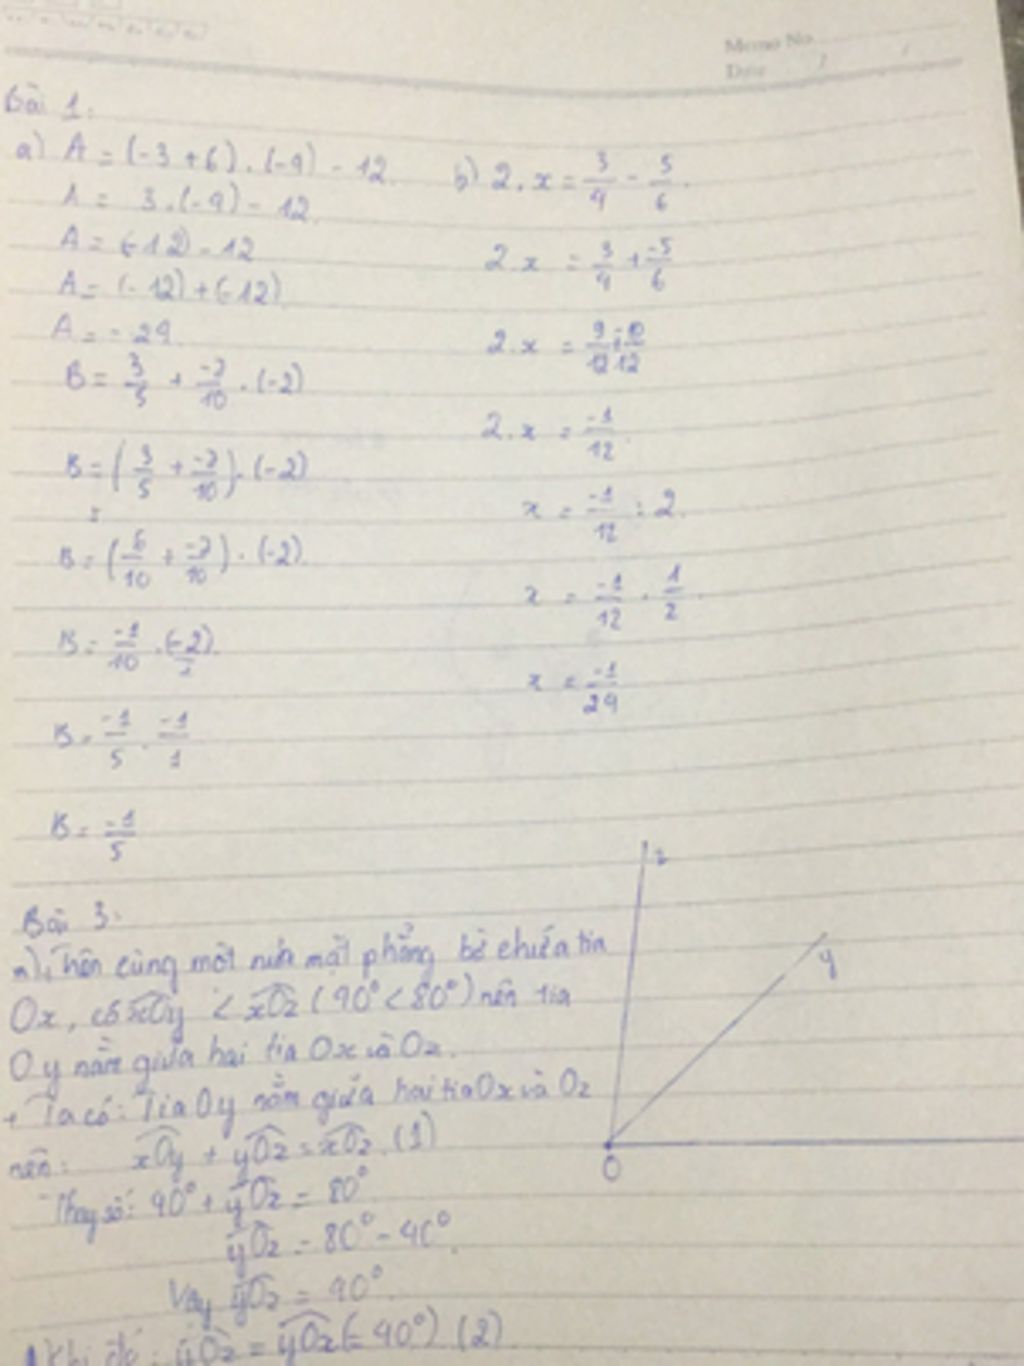 Memo No.
Date / /
Bài 1:
a) A = (-3 + 6) . (-4) - 12.
A = 3.(-4) - 12.
A = (-12) - 12
A = (-12) + (-12)
A = - 24.
B = 3/5 + -7/10 . (-2)
B = (3/5 + -7/10) . (-2)
=
B = (6/10 + -7/10) . (-2).
B = -1/10 . (-2).
B = -1/5 . -1/1
B = -1/5
b) 2.x = 3/4 - 5/6.
2.x = 3/4 + -5/6
2.x = 9/12 + -10/12
2.x = -1/12.
x = -1/12 : 2.
x = -1/12 . 1/2.
x = -1/24
Bài 3:
a), Trên cùng một nửa mặt phẳng bờ chứa tia
Ox, có xOy < xOz (40° < 80°) nên tia
Oy nằm giữa hai tia Ox và Oz.
+ Ta có: Tia Oy nằm giữa hai tia Ox và Oz
nên: xOy + yOz = xOz. (1)
Thay số: 40° + yOz = 80°
yOz = 80° - 40°.
Vậy yOz = 40°.
Khi đó: yOz = yOx (= 40°) (2)
z
y
O